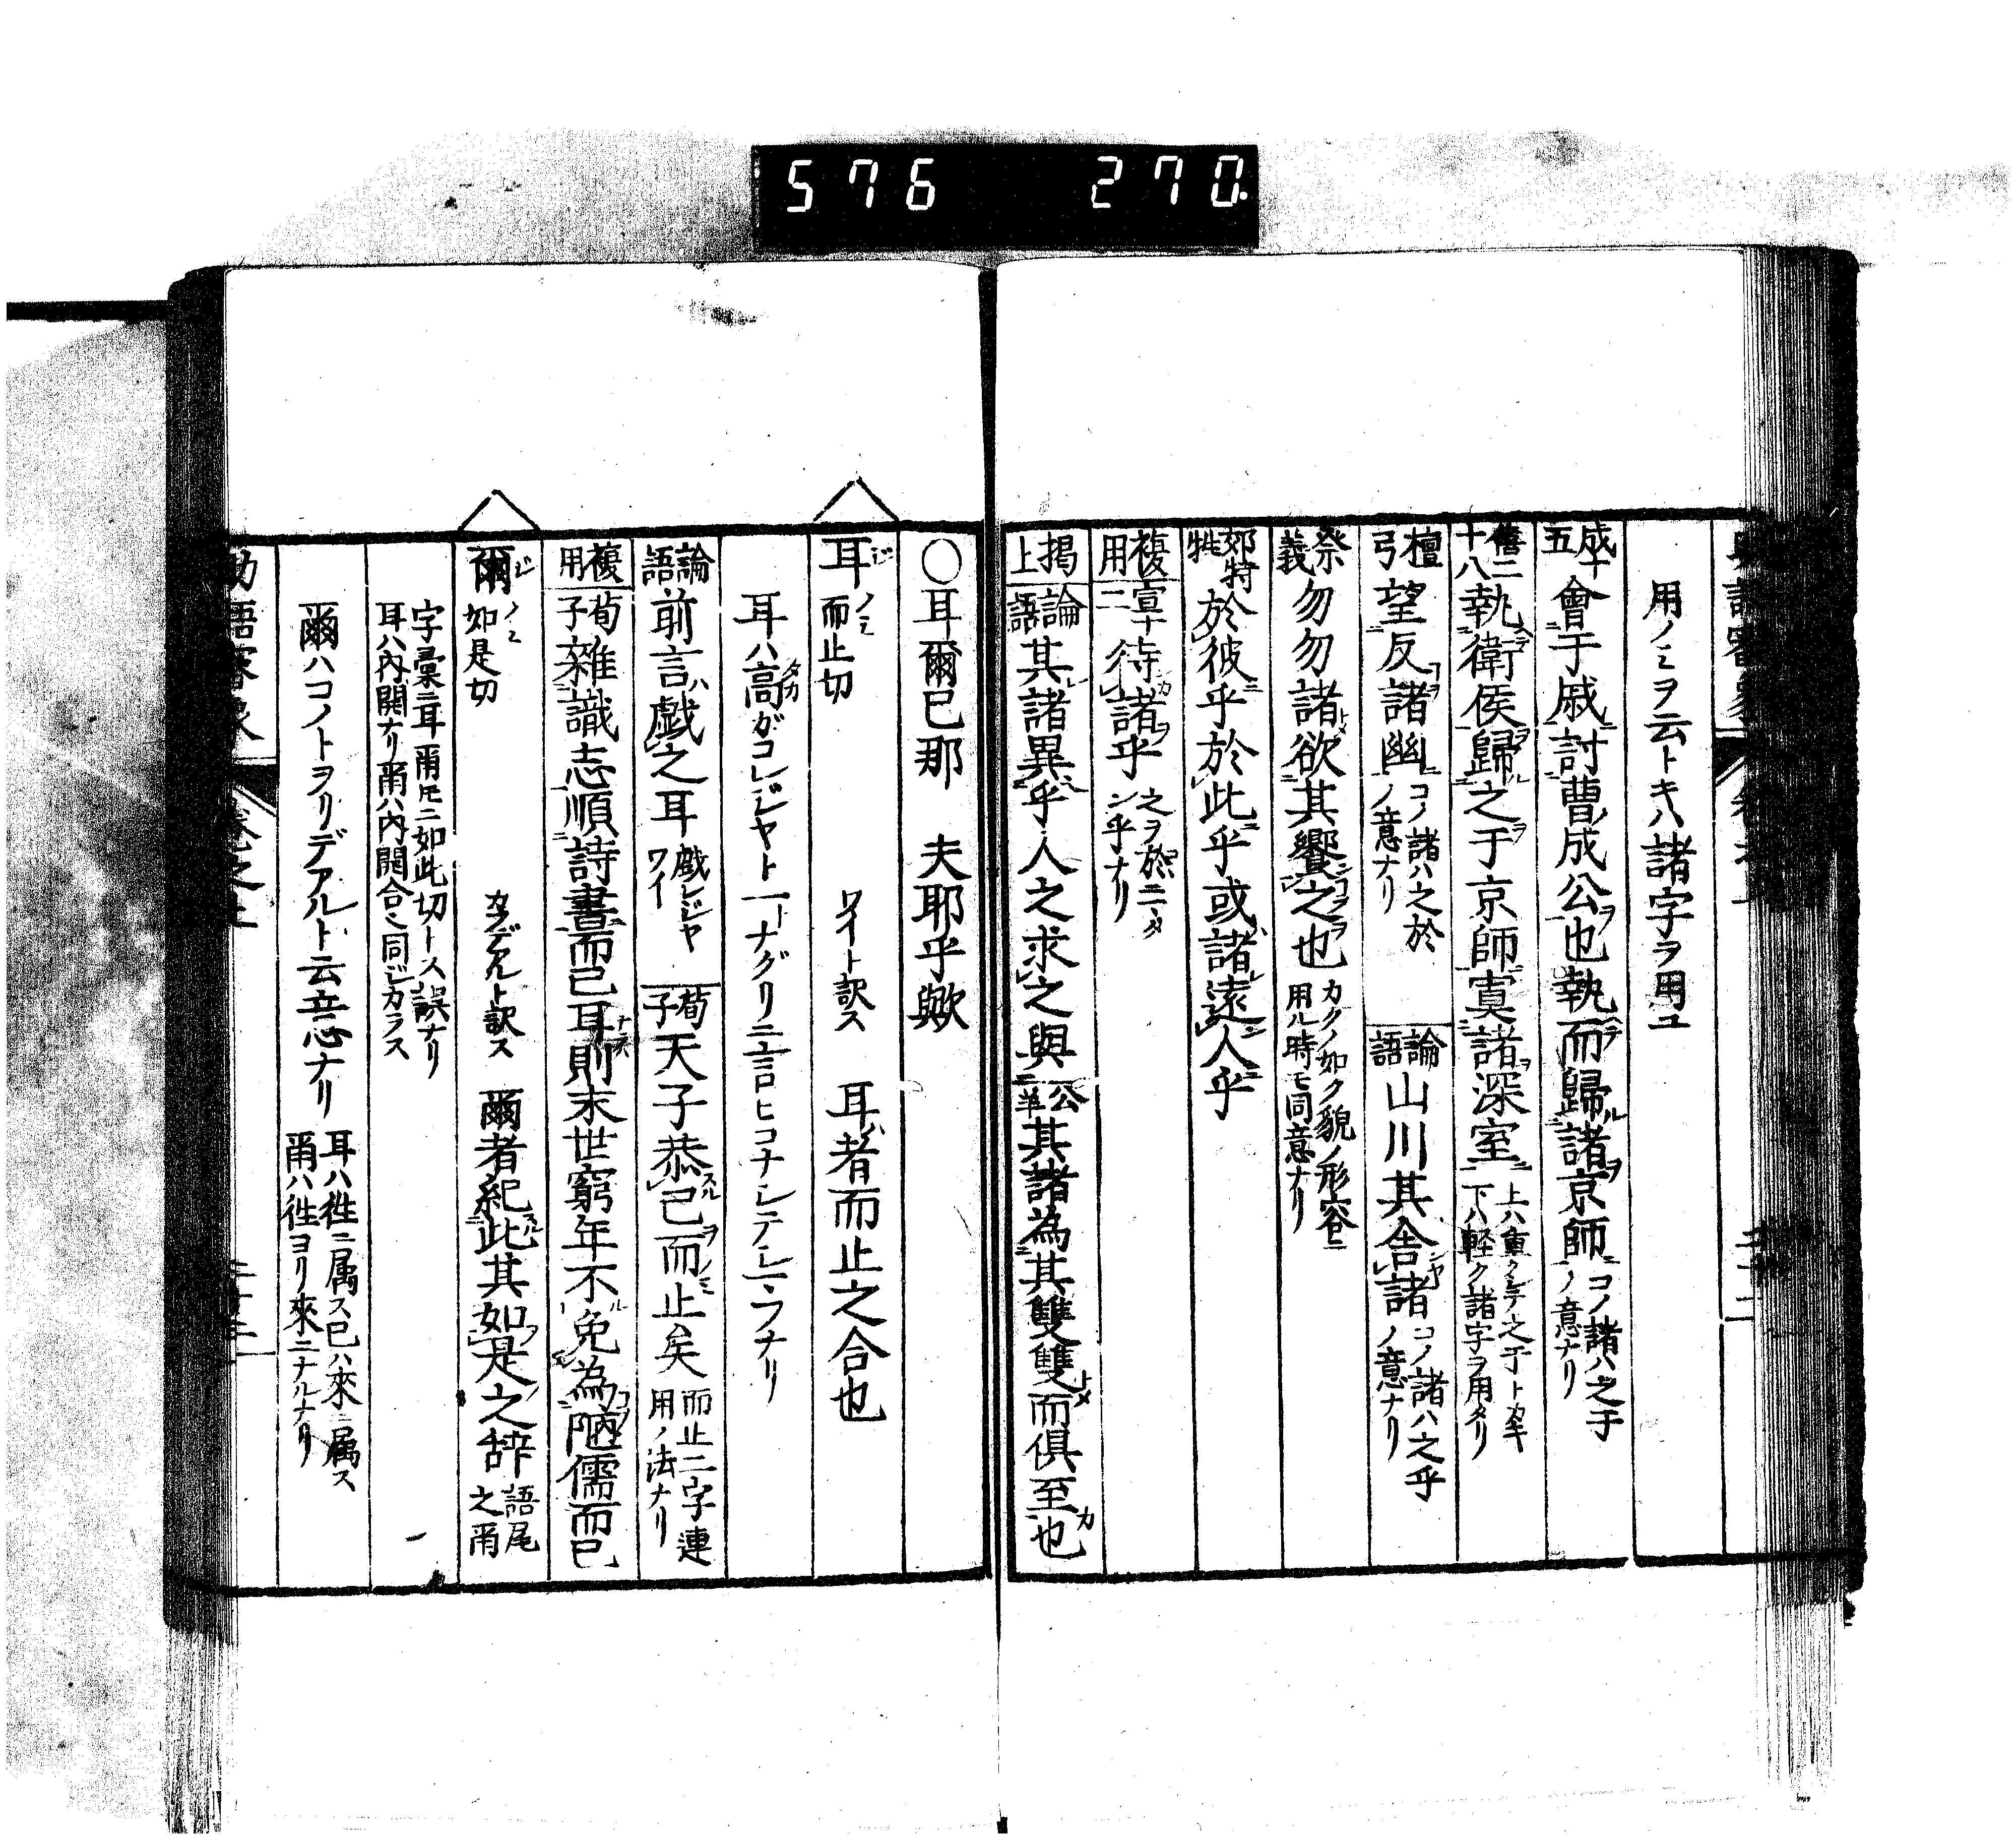 576 270
用ノミヲ云トキハ諸字ヲ用ユ
成十五 會于戚討曹成公也執而歸諸京師 コノ諸ハ之于ノ意ナリ
僖二十八 執衛侯歸之于京師寘諸深室 上ハ重クシテ之于トカキ下ハ軽ク諸字ヲ用タリ
檀弓 望反諸幽 コノ諸ハ之於ノ意ナリ 論語 山川其舍諸 コノ諸ハ之乎ノ意ナリ
祭義 勿勿諸欲其饗之也 カクノ如ク貌ノ形容ニ用ル時モ同意ナリ
郊特牲 於彼乎於此乎或諸遠人乎
複用 宣十二 待諸乎
揭上 論語 其諸異乎人之求之與 公羊 其諸為其雙雙而俱至也
〇耳爾已那 夫耶乎歟
耳 而止切 ワイト訳ス 耳者而止之合也
耳ハ高ガコレジヤト一トナグリニ言ヒコナシテシマフナリ
論語 前言戯之耳 戯レジヤワイ 荀子 天子恭己而止矣 而止二字連用ノ法ナリ
複用 荀子 雜識志順詩書而已耳則末世窮年不免為陋儒而已
爾 如是切 カクデアルト訳ス 爾者紀此其如是之辞 語尾之爾
字彙ニ耳爾モニ如此切トス誤ナリ耳ハ内開ナリ爾ハ内開合ニ同ジカラス
爾ハコノトヲリデアルト云意ナリ 耳ハ徃ニ属ス已ハ來ニ属ス爾ハ徃ヨリ來ニナルナリ